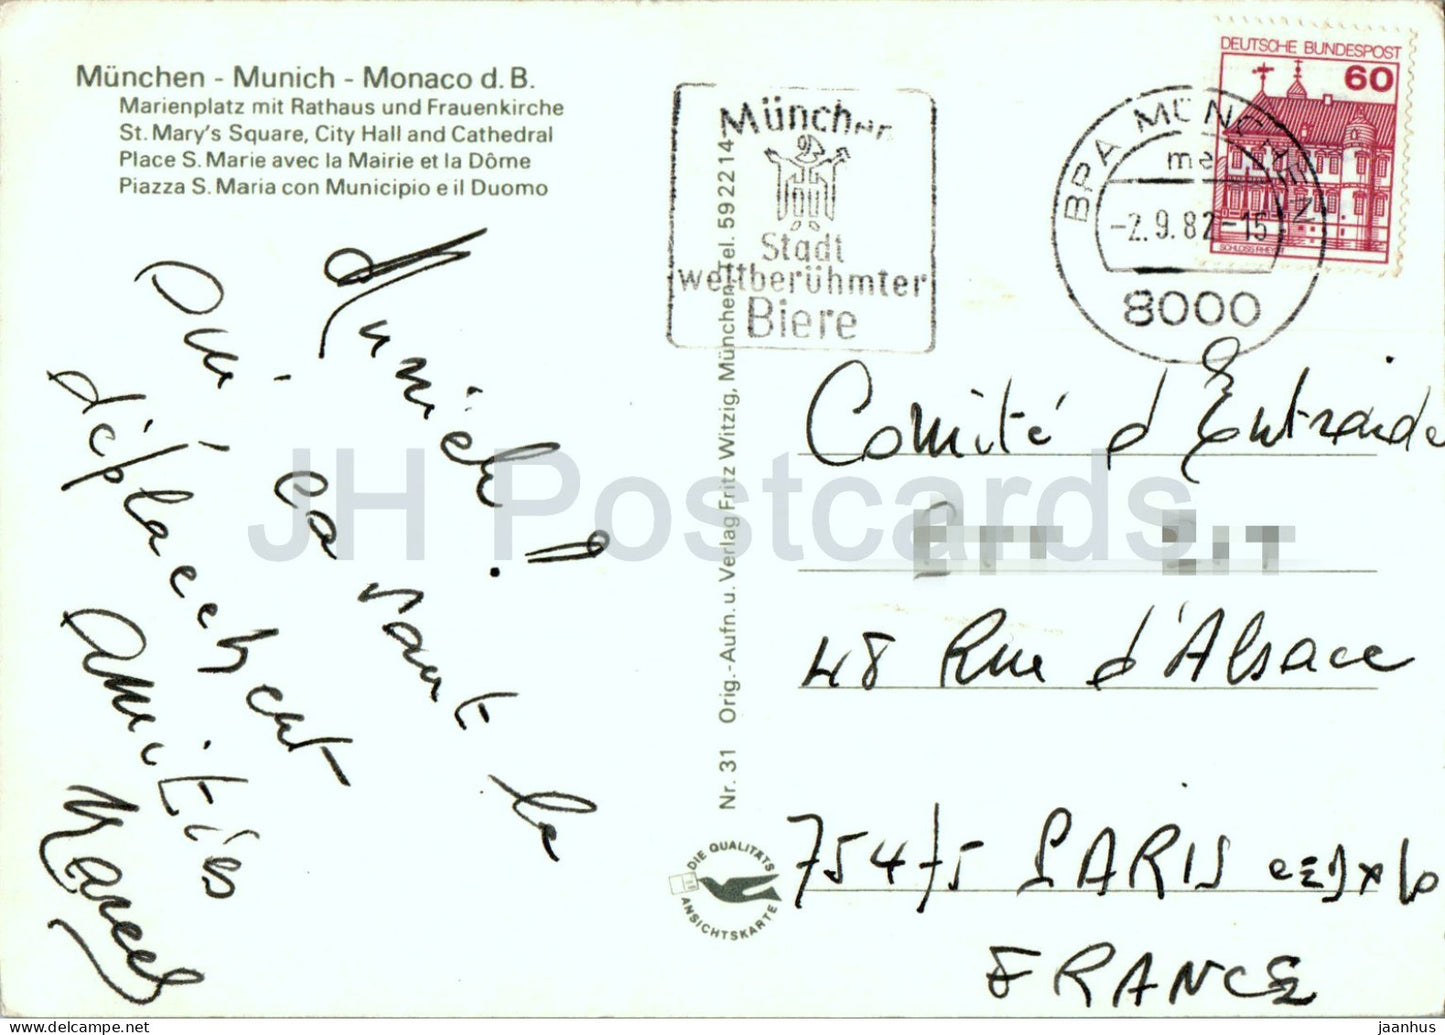 München - Munich - Monaco d. B.
Marienplatz mit Rathaus und Frauenkirche
St. Mary's Square, City Hall and Cathedral
Place S. Marie avec la Mairie et la Dôme
Piazza S. Maria con Municipio e il Duomo
Munich !
Oui, ça vaut le
déplacement
Amitiés
Marcel
Nr. 31 Orig.-Aufn. u. Verlag Fritz Witzig, München, Tel. 59 22 14
DIE QUALITÄTS
ANSICHTSKARTE
München
Stadt
weltberühmter
Biere
BPA MÜNCHEN
me
-2.9.82-15
8000
DEUTSCHE BUNDESPOST
60
SCHLOSS RHEYDT
Comité d'Entraide
48 Rue d'Alsace
75475 PARIS CEDEX 10
FRANCE
JH Postcards
hipstamp.com
jaanhus